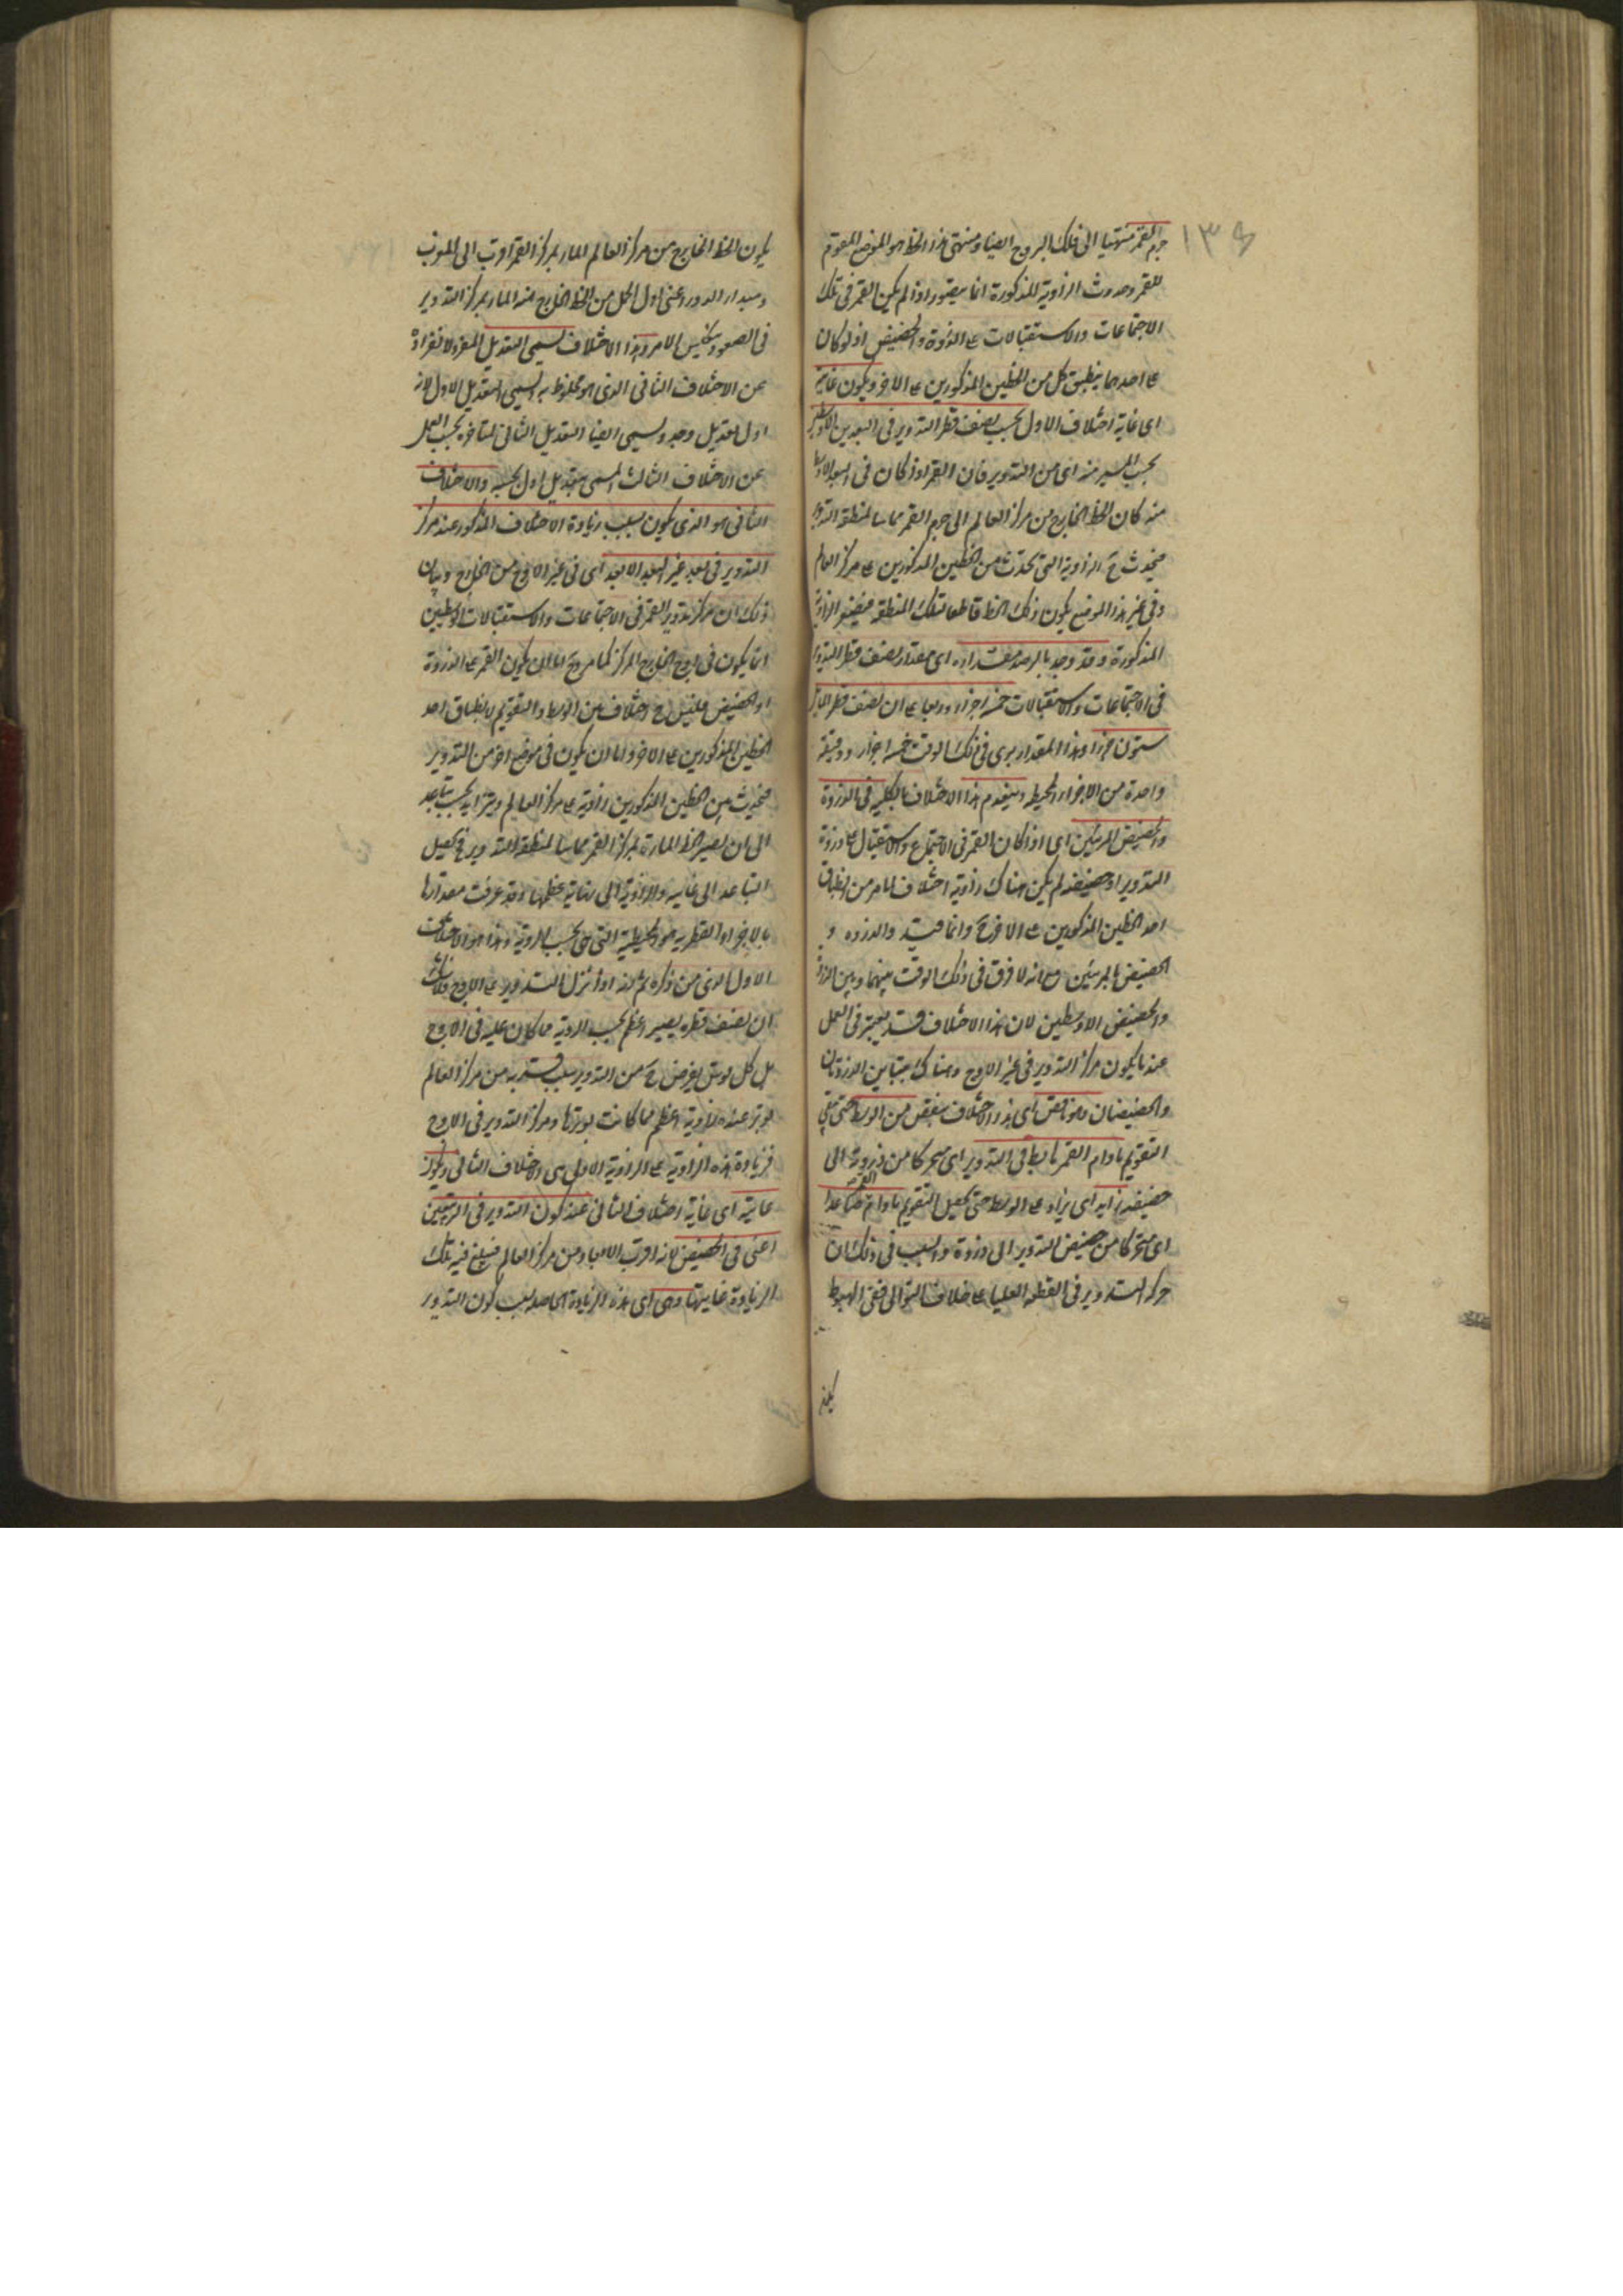 ١٣٤
جرم القمر منتهيا الى فلك البروج ايضا ومنتهى هذا الخط هو الموضع المقوم
للقمر وحدوث الزاوية المذكورة انما يتصور اذا لم يكن القمر فى تلك
الاجتماعات والاستقبالات على الذروة والحضيض اذ لو كان
على احدهما ينطبق كل من الخطين المذكورين على الآخر ويكون غاية
اى غاية اختلاف الاول بحسب نصف قطر التدوير فى البعدين الاوسطين
بحسب المسير منه اى من التدوير فان القمر اذا كان فى البعد الاوسط
منه كان الخط الخارج من مركز العالم الى جرم القمر مماسا لمنطقة التدوير
فيحدث ح الزاوية التى تحدث من الخطين المذكورين على مركز العالم
وفى غير هذا الموضع يكون ذلك الخط قاطعا لتلك المنطقة فيصغر الزاوية
المذكورة وقد وجد بالرصد مقداره اى مقدار نصف قطر التدوير
فى الاجتماعات والاستقبالات خمسة اجزاء وربعا على ان نصف قطر المايل
ستون جزءا وهذا المقدار يرى فى ذلك الوقت خمسة اجزاء ودقيقة
واحدة من الاجزاء المحيطية وينعدم هذا الاختلاف بالكلية فى الذروة
والحضيض المرئيين اى اذا كان القمر فى الاجتماع والاستقبال على ذروة
التدوير او حضيضه لم يكن هناك زاوية اختلاف لما مر من انطباق
احد الخطين المذكورين على الآخر ح وانما قيد والذروه و
الحضيض بالمرئيين مع انه لا فرق فى ذلك الوقت بينهما وبين الذروة
والحضيض الاوسطين لان هذا الاختلاف قد يعتبر فى العمل
عند ما يكون مركز التدوير فى غير الاوج وهناك يتباين الذروتان
والحضيضان وهو ناقص اى هذا الاختلاف ينقص من الوسط حتى يبقى
التقويم ما دام القمر هابطا فى التدوير اى متحركا من ذروته الى
حضيضه زايد اى يزاد على الوسط حتى يحصل التقويم ما دام القمر صاعدا
اى متحركا من حضيض التدوير الى ذروة والسبب فى ذلك ان
حركة التدوير فى القطعة العليا على خلاف التوالى ففى الهبوط
يكون
يكون الخط الخارج من مركز العالم المار بمركز القمر اقرب الى المغرب
ومبدا الدور اعنى اول الحمل من الخط الخارج منه المار بمركز التدوير
فى الصعود ينعكس الامر وهذا الاختلاف يسمى التعديل المفرد لانفراده
عن الاختلاف الثانى الذى هو مخلوط به ويسمى التعديل الاول لانه
اول تعديل وجد ويسمى ايضا التعديل الثانى لتاخره بحسب العمل
عن الاختلاف الثالث المسمى بتعديل اول بحسبه والاختلاف
الثانى هو الذى يكون بسبب زيادة الاختلاف المذكور عند مركز
التدوير فى بعد غير البعد الابعد اى فى غير الاوج من الخارج وبيان
ذلك ان مركز تدوير القمر فى الاجتماعات والاستقبالات الوسطيين
انما يكون فى اوج الخارج المركز كما مر ح اما ان يكون القمر على الذروة
او الحضيض فليس ح اختلاف بين الوسط والتقويم لانطباق احد
الخطين المذكورين على الآخر واما ان يكون فى موضع آخر من التدوير
فيحدث بين الخطين المذكورين زاوية على مركز العالم ويتزايد بحسب تباعد
الى ان يصير الخط المارة بمركز القمر مماسا لمنطقة التدوير ح يحصل
التباعد الى غايته والزاوية الى نهاية عظمها وقد عرفت مقدارها
بالاجزاء القطرية والمحيطية التى هى بحسب الرؤية وهذا هو الاختلاف
الاول الذى مر ذكره ثم انه اذا نزل التدوير عن الاوج فلا شك
ان نصف قطره يصير اعظم بحسب الرؤية مما كان عليه فى الاوج
بل كل قوس يفرض ح من التدوير بسبب قربه من مركز العالم
يوتر عنده زاوية اعظم مما كانت يوترها ومركز التدوير فى الاوج
فزيادة هذه الزاوية على الزاوية الاولى هى الاختلاف الثانى ويكون
غايته اى غاية اختلاف الثانى عند كون التدوير فى التربيعين
اعنى فى الحضيض لانه اقرب الابعاد من مركز العالم فيبلغ فيه تلك
الزيادة غايتها وهى اى هذه الزيادة الحاصلة بسبب كون التدوير